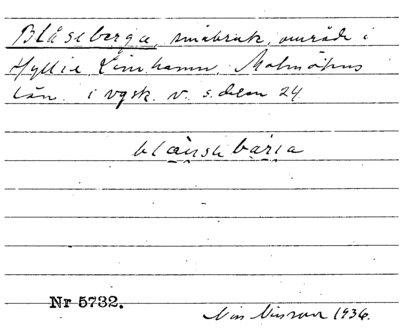 Blåseberga, småbruk, område i
Hyllie, Limhamn, Malmöhus
län. i vgsk. v. s. delen 24
blånsebària
Nr 5732.
Nils Nilsson 1936.